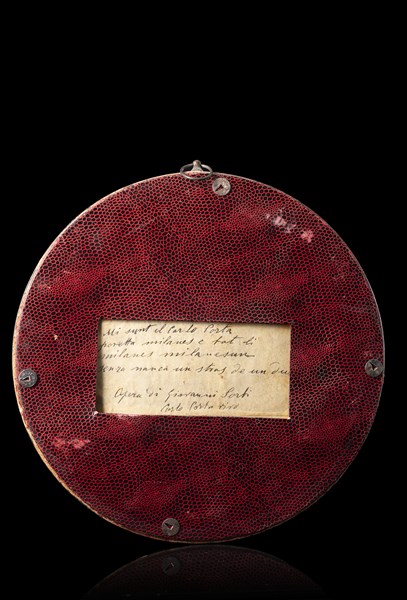 Mi sunt el Carlo Porta
povetta milanes e bot di
milanes milanesun
senza nanca un stras de un du
Opera di Giovanni Porti
Carlo Porta vivo